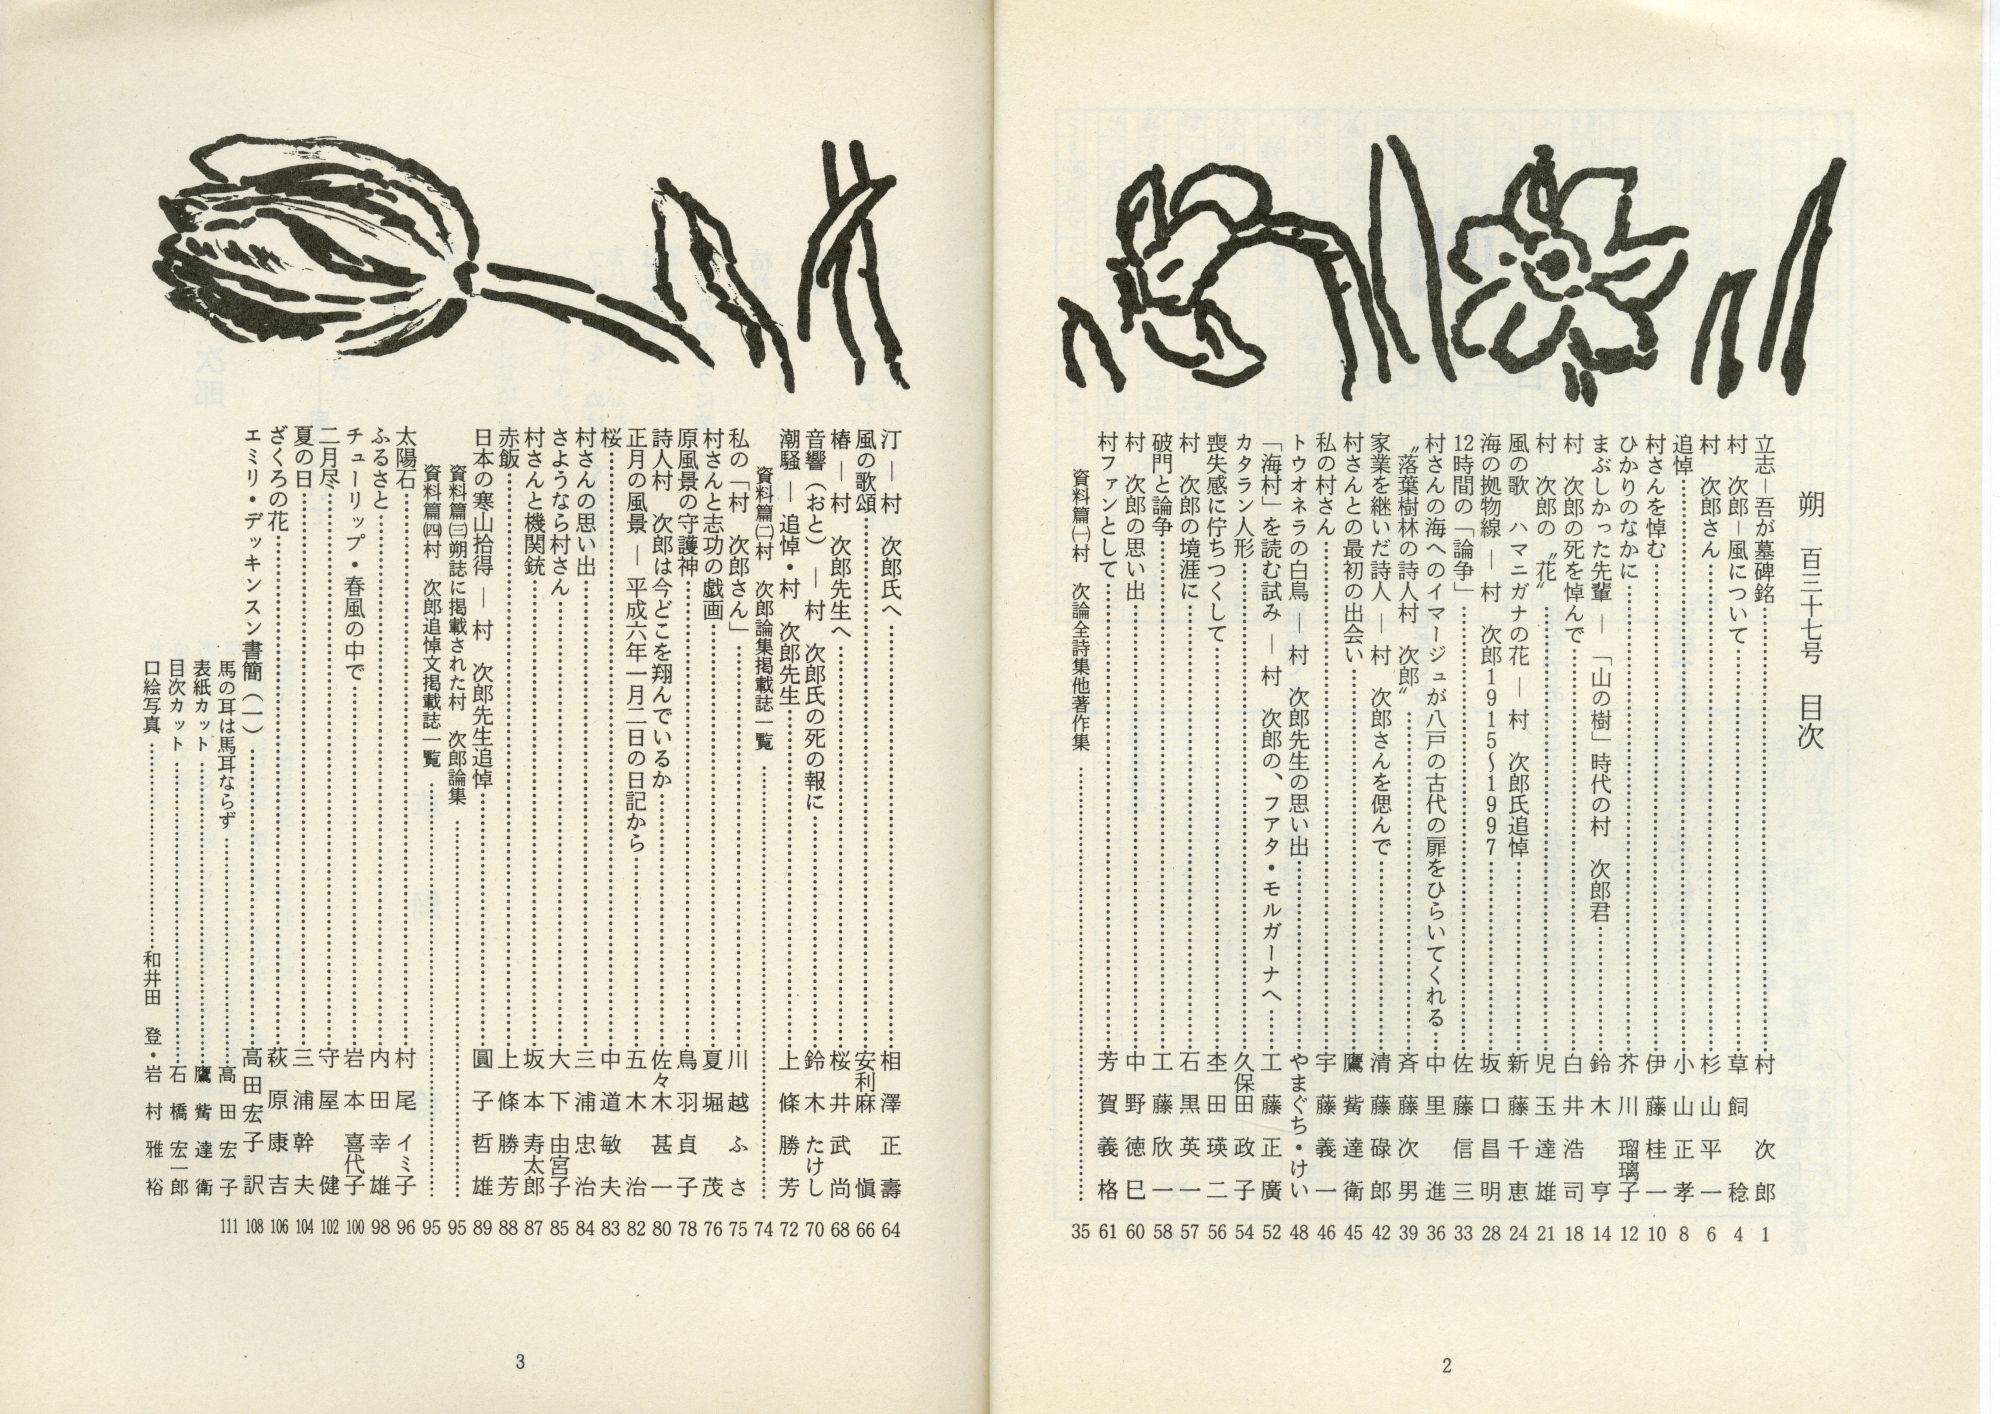 朔　百三十七号　目次
立志－吾が墓碑銘……村　次郎 1
村　次郎－風について……草飼稔 4
村　次郎さん……杉山平一 6
追悼……小山正孝 8
村さんを悼む……伊藤桂一 10
ひかりのなかに……芥川瑠璃子 12
まぶしかった先輩 ―「山の樹」時代の村　次郎君……鈴木亨 14
村　次郎の死を悼んで……白井浩司 18
村　次郎の〝花〟……児玉達雄 21
風の歌　ハマニガナの花 ― 村　次郎氏追悼……新藤千恵 24
海の拠物線 ― 村　次郎1915～1997……坂口昌明 28
12時間の「論争」……佐藤信三 33
村さんの海へのイマージュが八戸の古代の扉をひらいてくれる……中里進 36
〝落葉樹林の詩人村　次郎〟……斉藤次男 39
家業を継いだ詩人 ― 村　次郎さんを偲んで……清藤碌郎 42
村さんとの最初の出会い……鷹觜達衛 45
私の村さん……宇藤義一 46
トウオネラの白鳥 ― 村　次郎先生の思い出……やまぐち・けい 48
「海村」を読む試み ― 村　次郎の、フアタ・モルガーナへ……工藤正廣 52
カタラン人形……久保田政子 54
喪失感に佇ちつくして……杢田瑛二 56
村　次郎の境涯に……石黒英一 57
破門と論争……工藤欣一 58
村　次郎の思い出……中野徳巳 60
村ファンとして……芳賀義格 61
資料篇㈠村　次論全詩集他著作集…… 35
2
汀 ― 村　次郎氏へ……相澤正壽 64
風の歌頌……安利麻愼 66
椿 ― 村　次郎先生へ……桜井武尚 68
音響（おと） ― 村　次郎氏の死の報に……鈴木たけし 70
潮騒 ― 追悼・村　次郎先生……上條勝芳 72
資料篇㈡村　次郎論集掲載誌一覧…… 74
私の「村　次郎さん」……川越ふさ 75
村さんと志功の戯画……夏堀茂 76
原風景の守護神……鳥羽貞子 78
詩人村　次郎は今どこを翔んでいるか……佐々木甚一 80
正月の風景 ― 平成六年一月二日の日記から……五木治 82
桜……中道敏夫 83
村さんの思い出……三浦忠治 84
さようなら村さん……大下由宮子 85
村さんと機関銃……坂本寿太郎 87
赤飯……上條勝芳 88
日本の寒山拾得 ― 村　次郎先生追悼……圓子哲雄 89
資料篇㈢朔誌に掲載された村　次郎論集…… 95
資料篇㈣村　次郎追悼文掲載誌一覧…… 95
太陽石……村尾イミ子 96
ふるさと……内田幸雄 98
チューリップ・春風の中で……岩本喜代子 100
二月尽……守屋健 102
夏の日……三浦幹夫 104
ざくろの花……萩原康吉 106
エミリ・デッキンスン書簡（一）……高田宏子訳 108
馬の耳は馬耳ならず……髙田宏子 111
表紙カット……鷹觜達衛
目次カット……石橋宏一郎
口絵写真……和井田　登・岩村雅裕
3